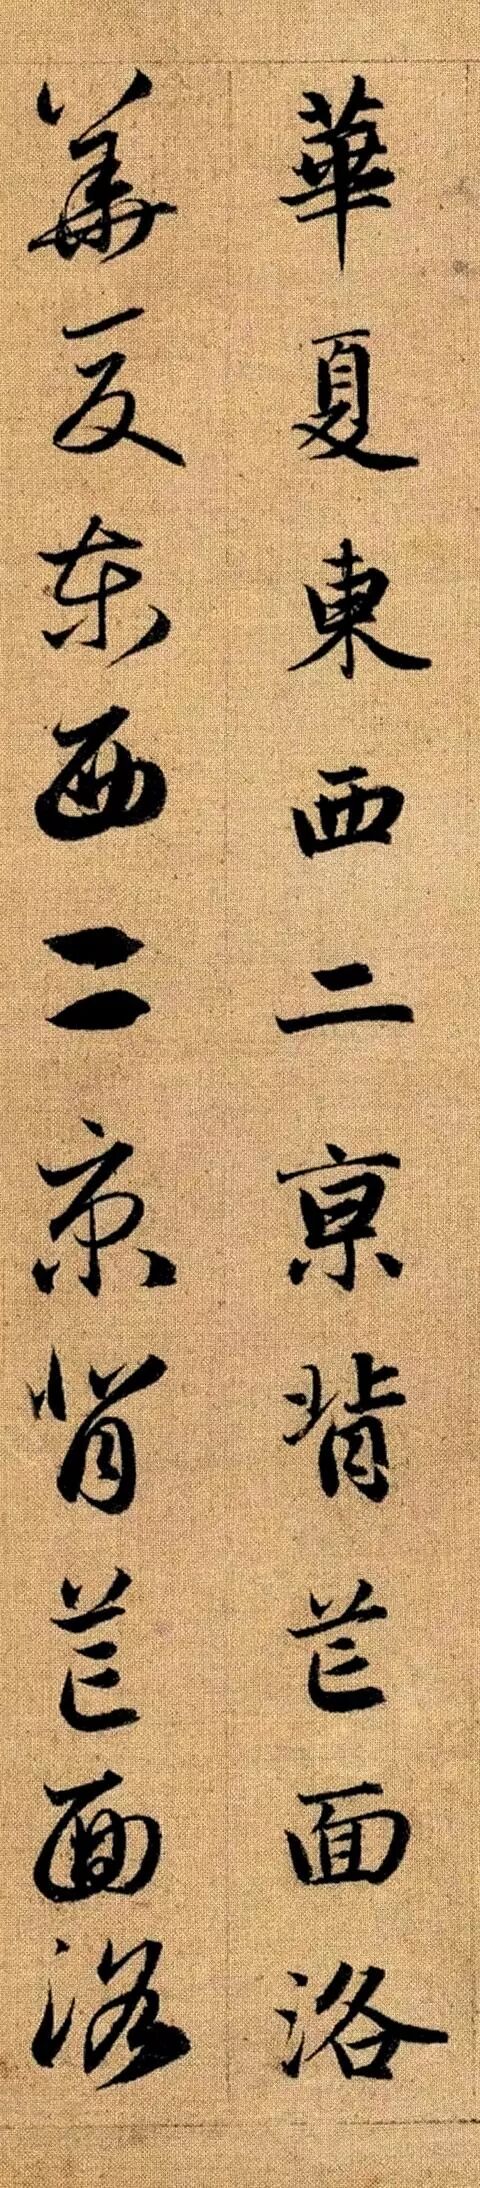 華夏東西二亰背芒面洛
華夏東西二京背芒面洛